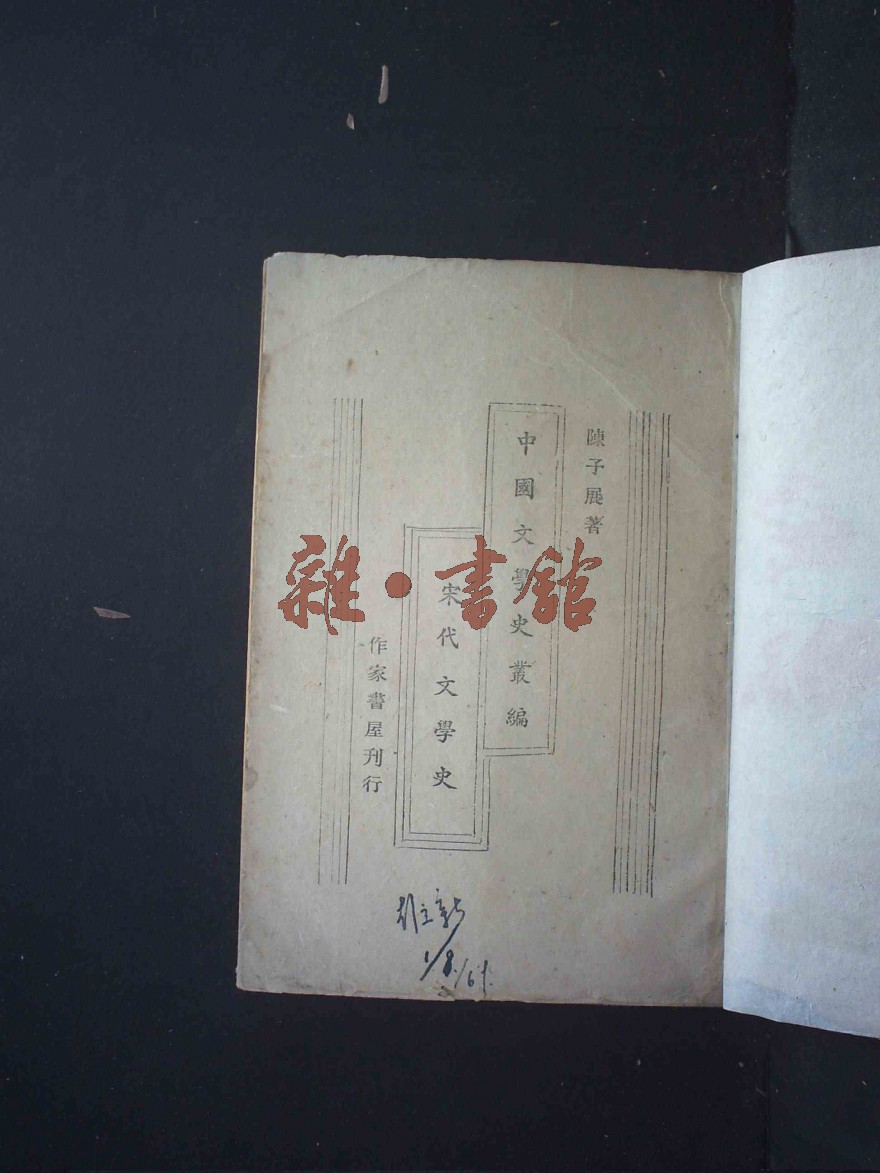 陳子展著
中國文學史叢編
宋代文學史
作家書屋刊行
雜·書館
1/8/61